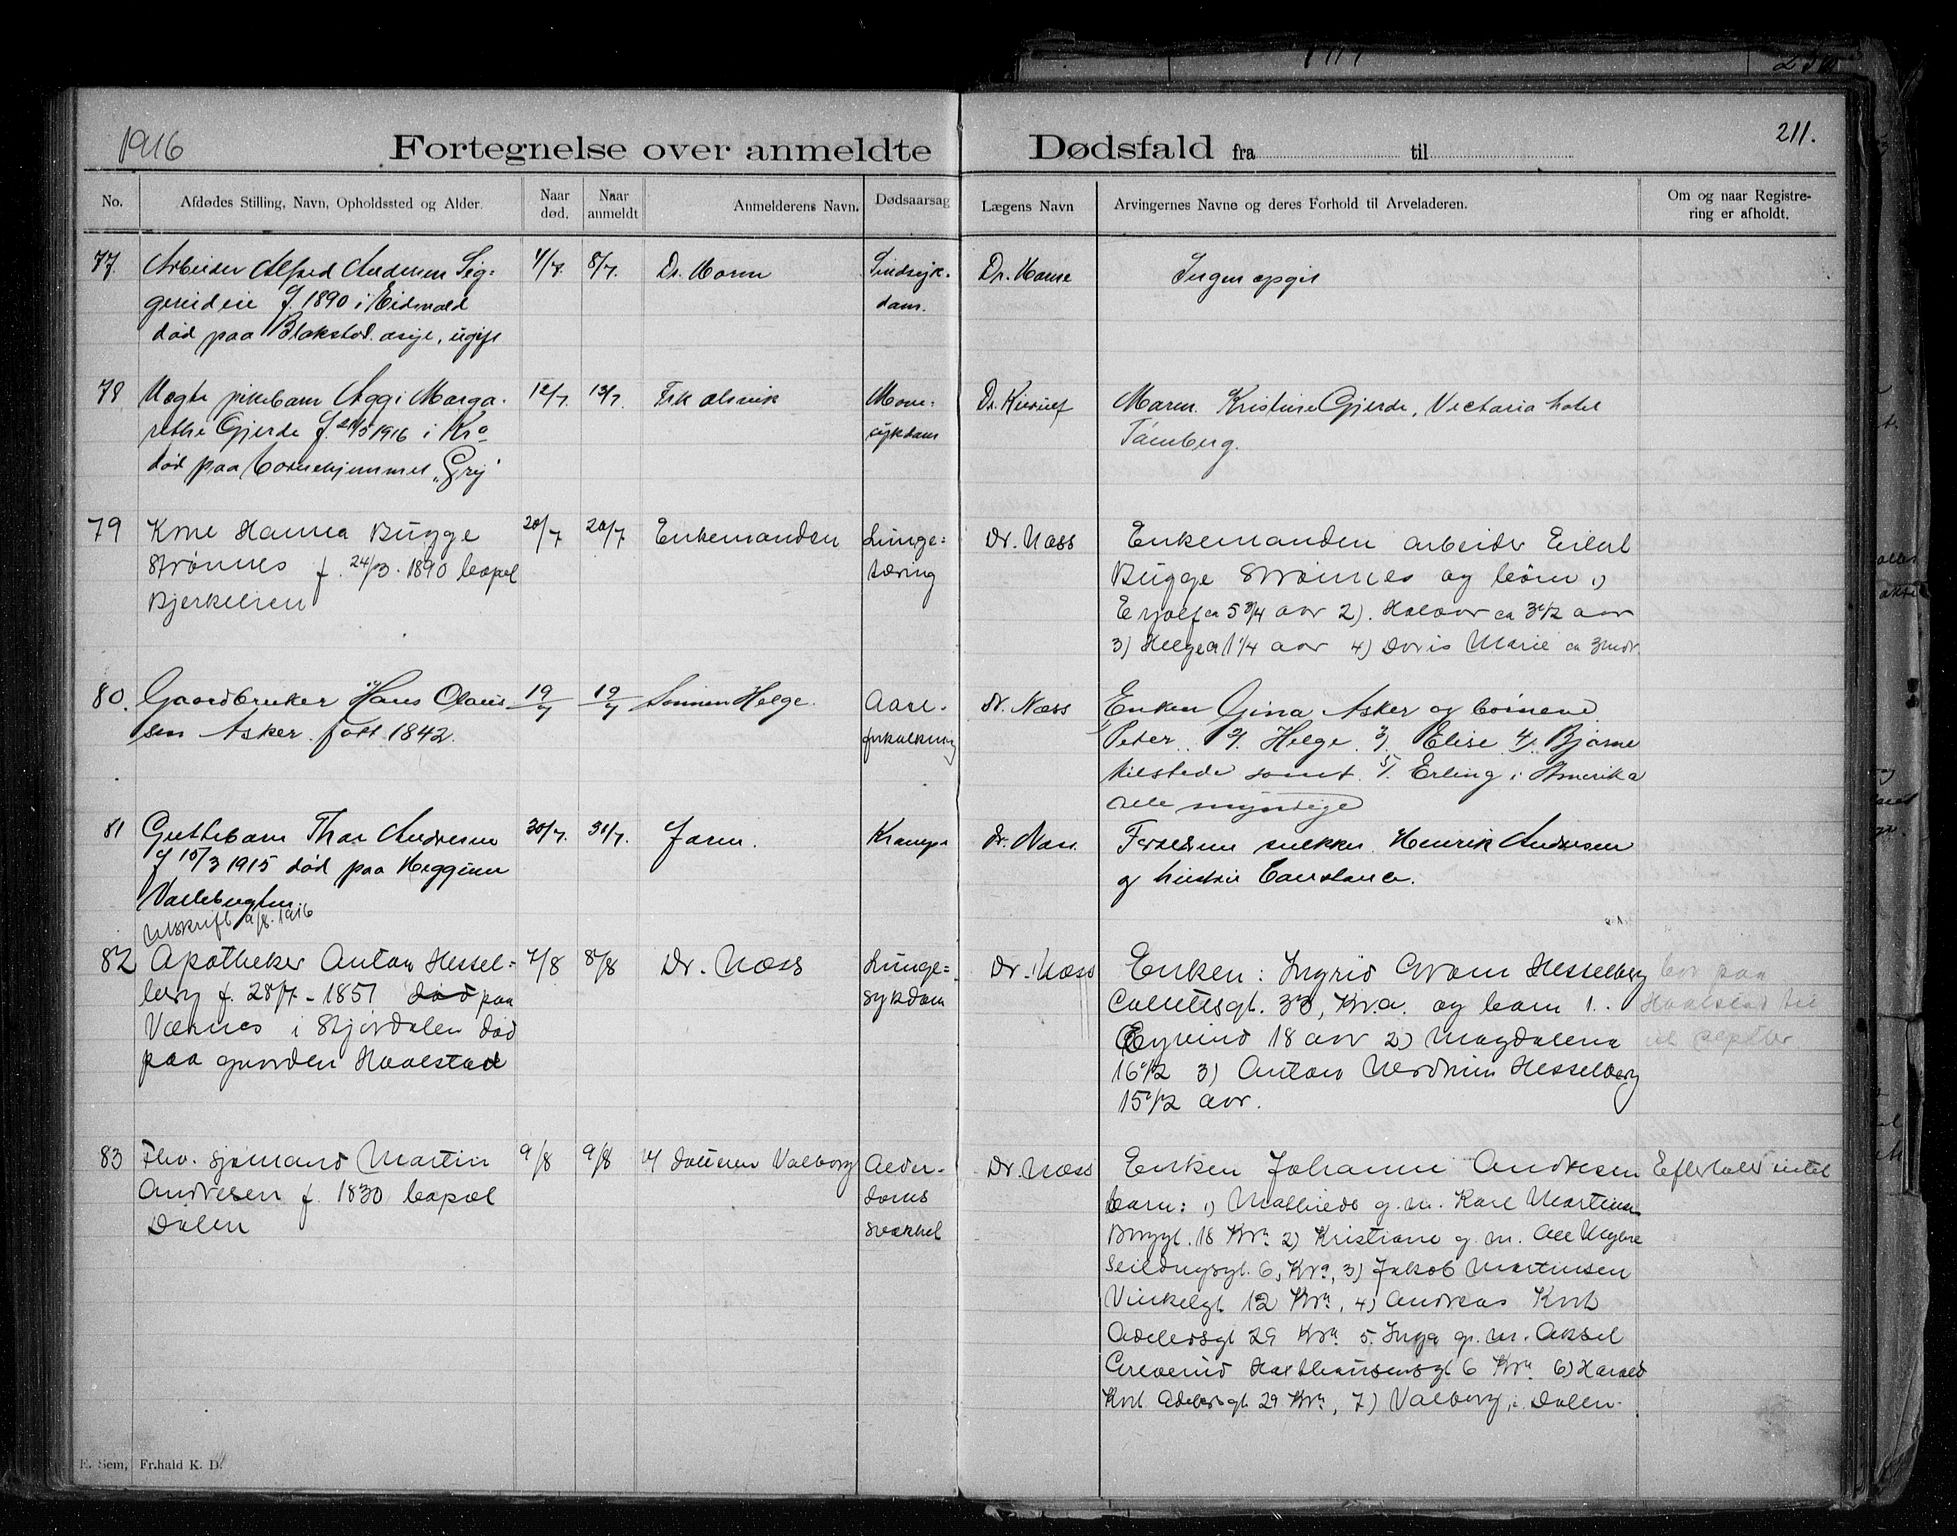 1916
Fortegnelse over anmeldte Dødsfald fra til
211.
No.
Afdødes Stilling, Navn, Opholdssted og Alder.
Naar død.
Naar anmeldt
Anmelderens Navn.
Dødsaarsag
Lægens Navn
Arvingernes Navne og deres Forhold til Arveladeren.
Om og naar Registrering er afholdt.
77.
Arbeider Alfred Andersen Sig=
f 1890 i Eidsvold
død paa Blakstad asyl, ugift
8/7.
Dr.
Sindsyk-
dom.
Dr.
Ingen opgit
78
Uegte pikebarn Aggi Marga-
rethe Gjerde f. 1916 i Kra
død paa Barnehjemmet "Gry"
12/7
13/7
Frk Alsvik
Mave-
sykdom
Dr. Kierulf
Moren Kristine Gjerde, Victoria hotel
Tønsberg.
79
Kone Hanna Bugge
Strømnes f. 24/3. 1890 bopæl
Bjerkelien
20/7
20/7
Enkemanden
Lunge=
tæring
Dr. Næss
Enkemanden arbeider Eilert
Bugge Strømnes og børn 1)
Eyolf ca 5 3/4 aar 2). Halvor ca 3 1/2 aar
3) Helge ca 1 1/4 aar 4) Doris Marie ca 3 mdr.
80.
Gaardbruker Hans Olaus
sen Asker. født 1842.
19/7
19/7
Sønnen Helge.
Aare-
forkalkning
Dr. Næss
Enken Gina Asker og børnene
1/ Peter 2/ Helge 3/ Elise 4/ Bjarne
tilstede samt 5/ Erling i Amerika
alle myndige
81
Guttebarn Thor Andresen
f 15/3 1915 død paa Heggum
Vallebugten
30/7.
31/7.
Faren.
Krampe
Dr. Næss
Forældrene snekker Henrik Andresen
og hustru Constance.
Utskrift 9/8. 1916
82
Apotheker Anton Hessel=
berg f. 28/7 - 1857 død paa
Værnes i Stjørdalen død
paa gaarden Hvalstad
7/8
8/8
Dr. Næss
Lunge=
sykdom
Dr. Næss
Enken: Ingrid Gram Hesselberg
Colletsgt. 33, Kr.a. og barn 1.
Eyvind 18 aar 2) Magdalena
16 1/2 3) Anton Hesselberg
15 1/2 aar.
bor paa
Hvalstad til
septbr.
83
Fhv. sjømand Martin
Andresen f. 1830 bopæl
Dalen
9/8
9/8
v/ datteren Valborg
Alder-
doms
svækkel
Dr. Næss
Enken Johanne Andresen
barn: 1) Mathilde g. m. Karl Martinsen
Borggt. 18 Kra 2) Kristiane g. m. Ole Myhre
6, Kra, 3) Jakob Martinsen
Vinkelgt 12 Kra, 4) Andreas Kort
Adelersgt 29 Kra 5. Inga g. m. Aksel
Grevemd Haxthausensgt 6 Kra 6) Harald
Kort Adelersgt 29 Kra, 7) Valborg, Dalen.
Efterlater intet
E. Sem, Fr.hald K. D.